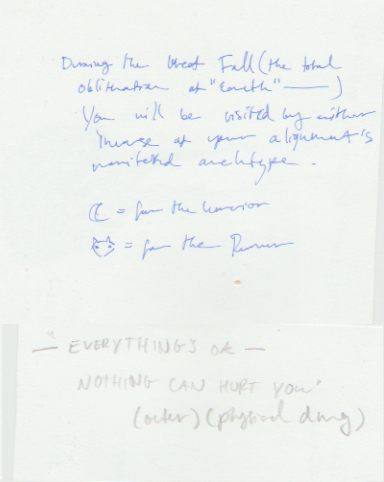 During the Great Fall (the total
obliteration of "Earth" —)
You will be visited by either
image of your alignment's
manifested archetype.
= for the Warrior
= for the Runner
— "EVERYTHING'S OK —
NOTHING CAN HURT YOU"
(outer) (physical